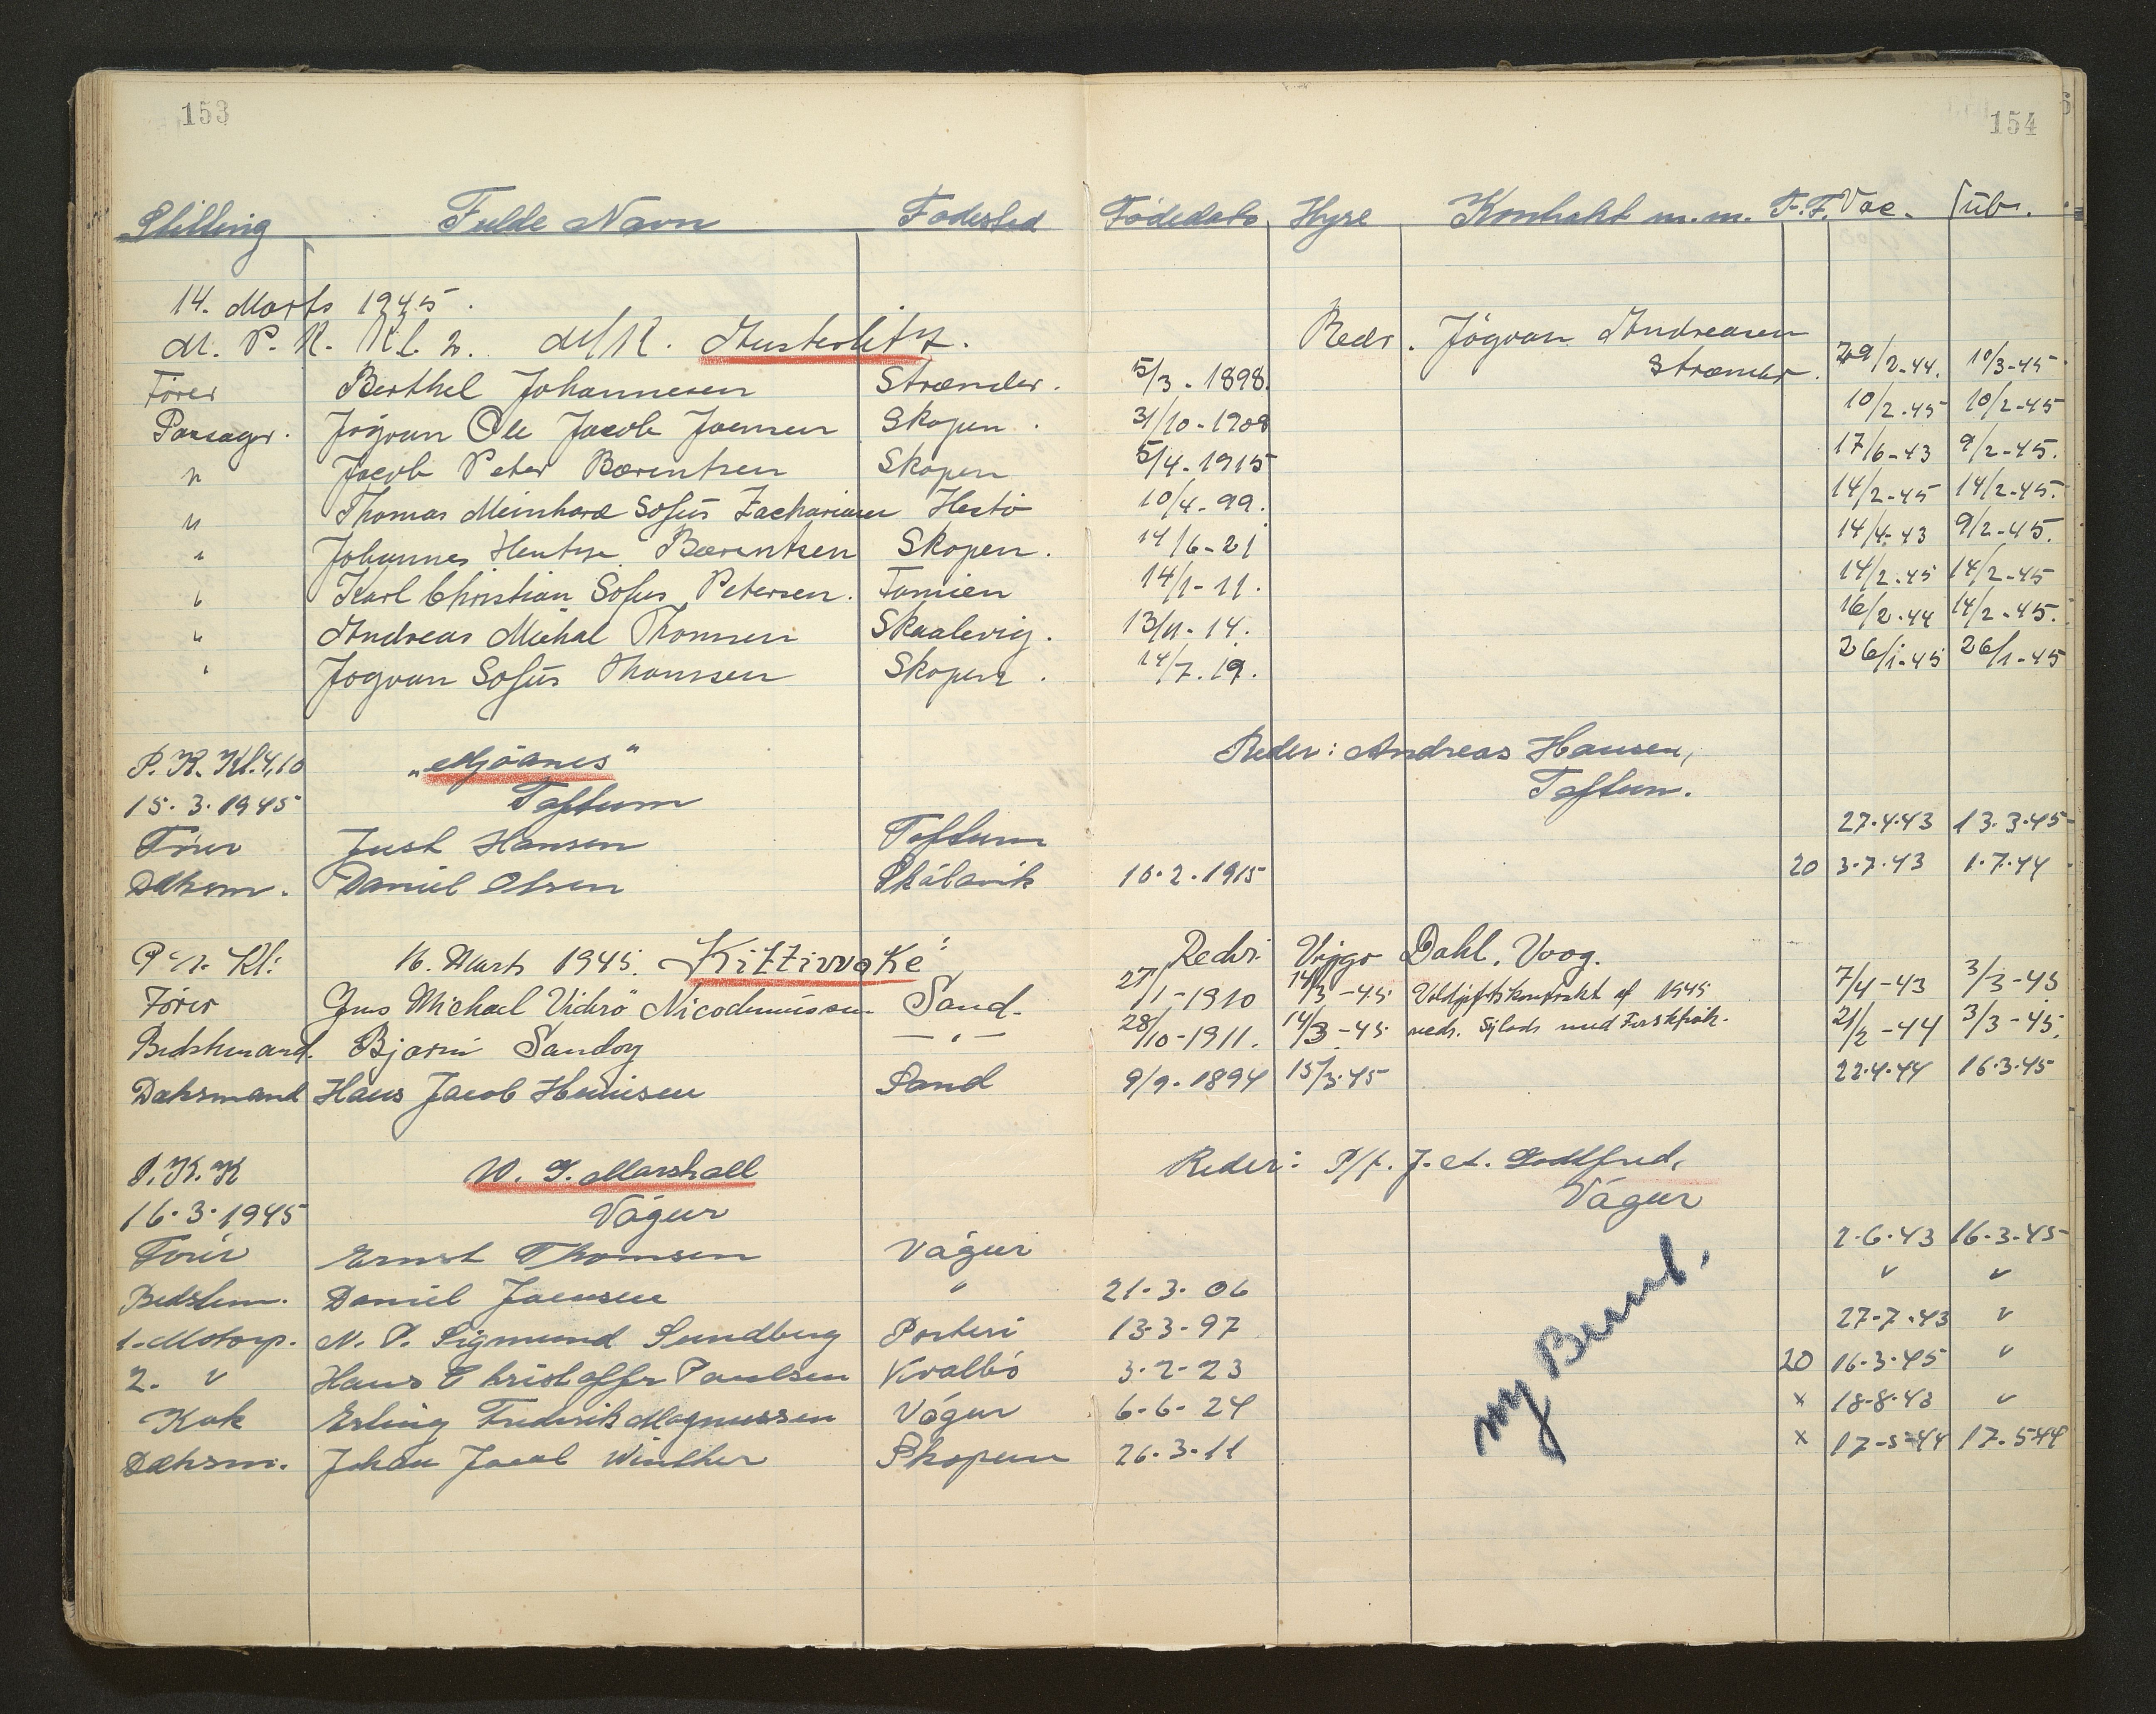 153
154
Stilling Fulde Navn Fødested Fødedato Hyre Kontrakt m.m. F.F. Vac. Sub.
14. Marts 1945.
M. P. K. Kl. 2. M/K. Austerlitz. Reder. Jógvan Andreasen
Strænder.
Fører Berthel Johannesen Strænder. 5/3-1898. 29/2-44. 10/3-45
Passager. Jógvan Ole Jacob Joensen Skopen. 31/10-1908 10/2-45 10/2-45
" Jacob Peter Bærentsen Skopen 5/4-1915 17/6-43 9/2-45.
" Thomas Meinhard Sofus Zachariasen Hestö 10/4-99. 14/2-45 14/2-45.
" Johannes Bærentsen Skopen. 14/6-21 14/4-43 9/2-45.
" Karl Christian Sofus Petersen. Famien 14/1-11. 14/2-45 14/2-45
" Andreas Michal Thomsen Skaalevig. 13/11-14. 16/2-44 14/2-45.
" Jogvan Sofus Thomsen Skopen. 14/7.19. 26/1-45 26/1-45
P.K. Kl. 4,10 „Mjóanes" Reder: Andreas Hansen,
15.3.1945 Toftum Toftum.
Fører Just Hansen Toftum 27.4.43 13.3.45
Dæksm. Daniel Olsen Skálavik 16.2.1915 20 3.7.43 1.7.44
Kl: 16. Marts 1945. Kittiwake Reder Viggo Dahl, Vaag.
Fører Jens Michael Viderö Nicodemussen Sand. 27/1-1910 14/3-45 af 1945 7/4-43 3/3-45
Bedstemand. Bjarni Sandoy — " — 28/10-1911. 14/3-45 vedr. Sejlads med 21/2-44 3/3-45.
Dæksmand Hans Jacob Henriksen Sand 9/9-1894 15/3-45 22.4.44 16.3.45
P.K.K W. S. Marshall Reder: P/f. J. A. Godtfred,
16.3.1945 Vágur Vágur
Fører Ernst Thomsen Vágur 2.6.43 16.3.45
Bedstem. Daniel Joensen " 21.3.06 " "
1. Motorp. N. P. Sigmund Sundberg Porteri 13.3-97 27-7.43 "
2. " Hans Christoffer Poulsen Kvalbö 3-2-23 20 16.3.45 "
Kok Erling Frederik Magnussen Vágur 6-6-24 x 18-8.43 "
Dæksm. Johan Jacob Winther Skopun 26.3.11 x 17-5-44 17.5-44
ny Bemt.